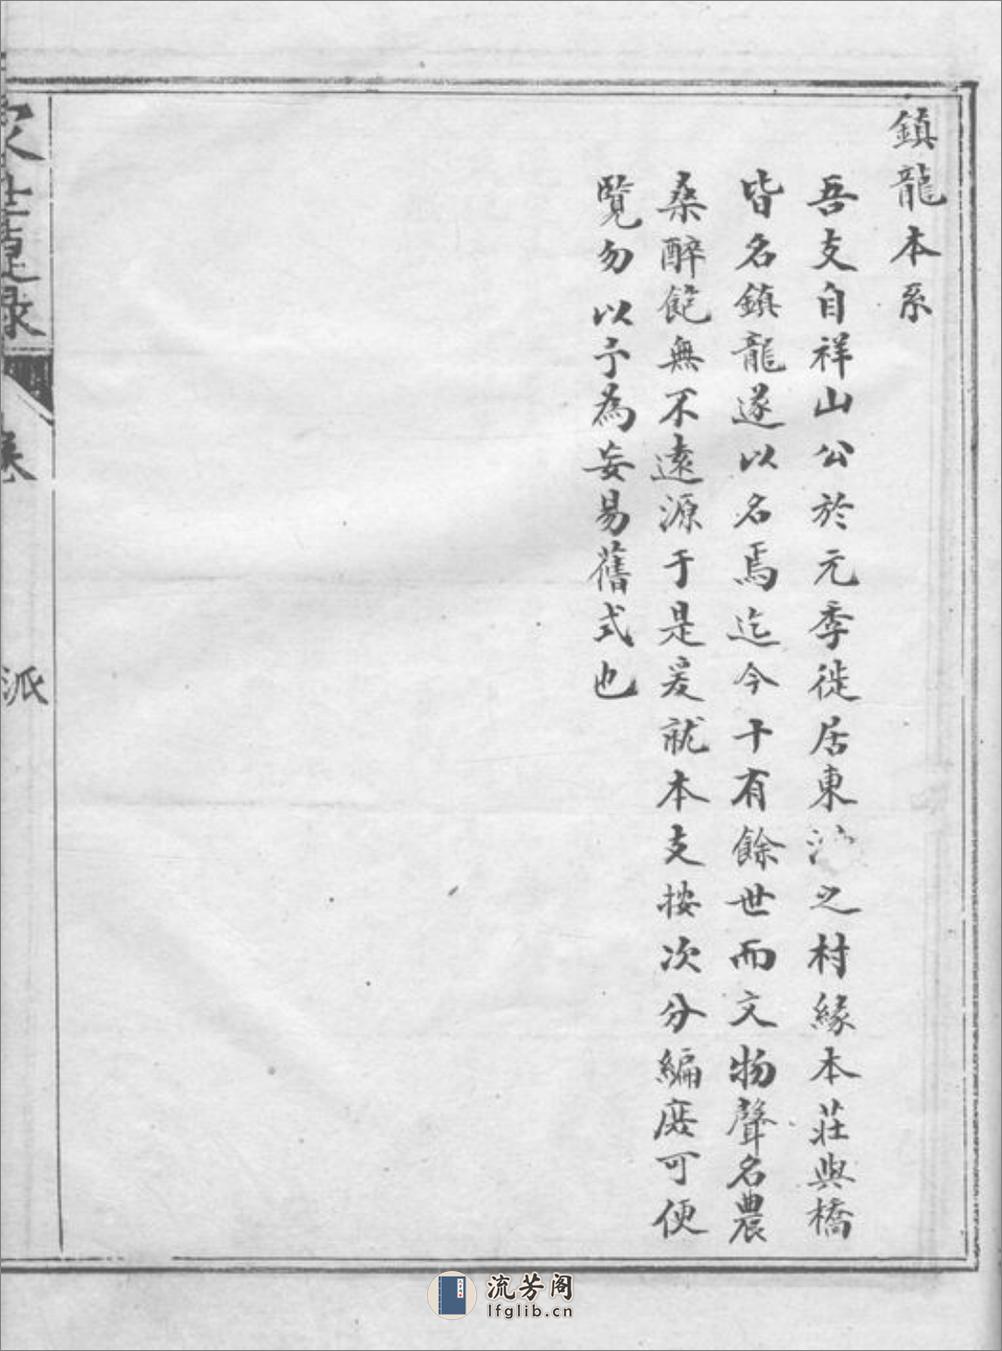 鎮龍本系
吾支自祥山公於元季徙居東之村緣本莊與橋
皆名鎮龍遂以名焉迄今十有餘世而文物聲名農
桑醉飽無不遠源于是爰就本支按次分編庶可便
覽勿以予為妄易舊式也
派
流芳阁
lfglib.cn